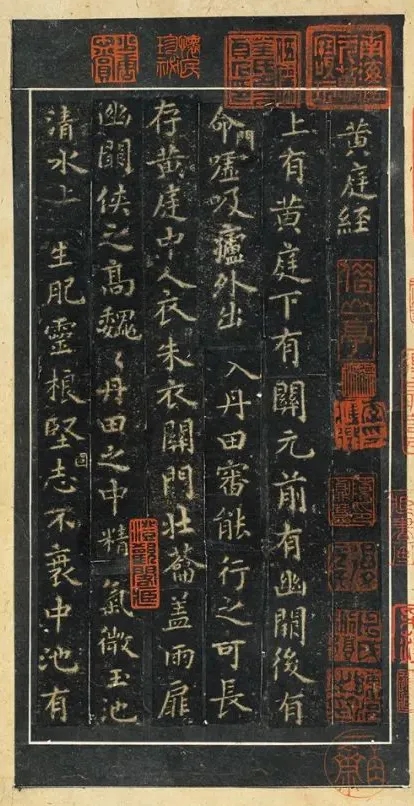 黄庭經
上有黄庭下有關元前有幽闕後有
命門噓吸廬外出入丹田審能行之可長
存黄庭中人衣朱衣關門壯蘥盖兩扉
幽闕俠之高魏〻丹田之中精氣微玉池
清水上生肥靈根堅固志不衰中池有